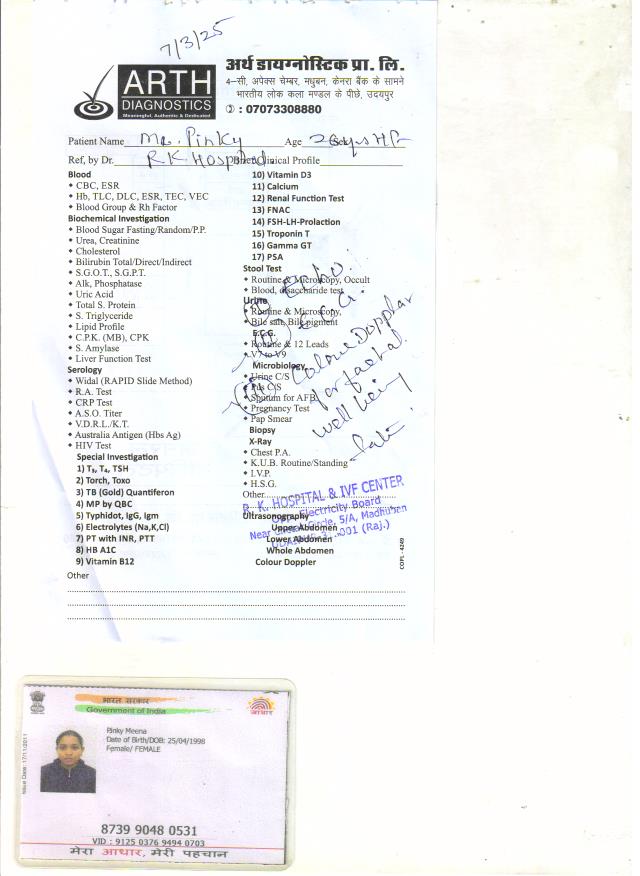 7/3/25
ARTH
DIAGNOSTICS
Meaningful, Authentic & Dedicated
अर्थ डायग्नोस्टिक प्रा. लि.
4-सी, अपेक्स चेम्बर, मधुबन, केनरा बैंक के सामने
भारतीय लोक कला मण्डल के पीछे, उदयपुर
: 07073308880
Patient Name Mrs. Pinky Age 26 yrs Sex
Ref, by Dr. R K Hospital Brief Clinical Profile
Blood
CBC, ESR
Hb, TLC, DLC, ESR, TEC, VEC
Blood Group & Rh Factor
Biochemical Investigation
Blood Sugar Fasting/Random/P.P.
Urea, Creatinine
Cholesterol
Bilirubin Total/Direct/Indirect
S.G.O.T., S.G.P.T.
Alk, Phosphatase
Uric Acid
Total S. Protein
S. Triglyceride
Lipid Profile
C.P.K. (MB), CPK
S. Amylase
Liver Function Test
Serology
Widal (RAPID Slide Method)
R.A. Test
CRP Test
A.S.O. Titer
V.D.R.L./K.T.
Australia Antigen (Hbs Ag)
HIV Test
Special Investigation
1) T₃, T₄, TSH
2) Torch, Toxo
3) TB (Gold) Quantiferon
4) MP by QBC
5) Typhidot, IgG, Igm
6) Electrolytes (Na,K,Cl)
7) PT with INR, PTT
8) HB A1C
9) Vitamin B12
10) Vitamin D3
11) Calcium
12) Renal Function Test
13) FNAC
14) FSH-LH-Prolaction
15) Troponin T
16) Gamma GT
17) PSA
Stool Test
Routine & Microscopy, Occult
Blood, disaccharide test
Urine
Routine & Microscopy,
Bile salt, Bile pigment
E.C.G.
Routine & 12 Leads
V7 to V9
Microbiology
Urine C/S
Pus C/S
Sputum for AFB
Pregnancy Test
Pap Smear
Biopsy
X-Ray
Chest P.A.
K.U.B. Routine/Standing
I.V.P.
H.S.G.
Other
Ultrasonography
Upper Abdomen
Lower Abdomen
Whole Abdomen
Colour Doppler
Echo
E.C.G.
Colour Dopplar
for faetal
well being
R. K. HOSPITAL & IVF CENTER
Opp. Electricity Board
Near Circle, 5/A, Madhuban
001 (Raj.)
COPL - 4249
Other
भारत सरकार
Government of India
आधार
Issue Date: 17/11/2011
Pinky Meena
Date of Birth/DOB: 25/04/1998
Female/ FEMALE
8739 9048 0531
VID : 9125 0376 9494 0703
मेरा आधार, मेरी पहचान